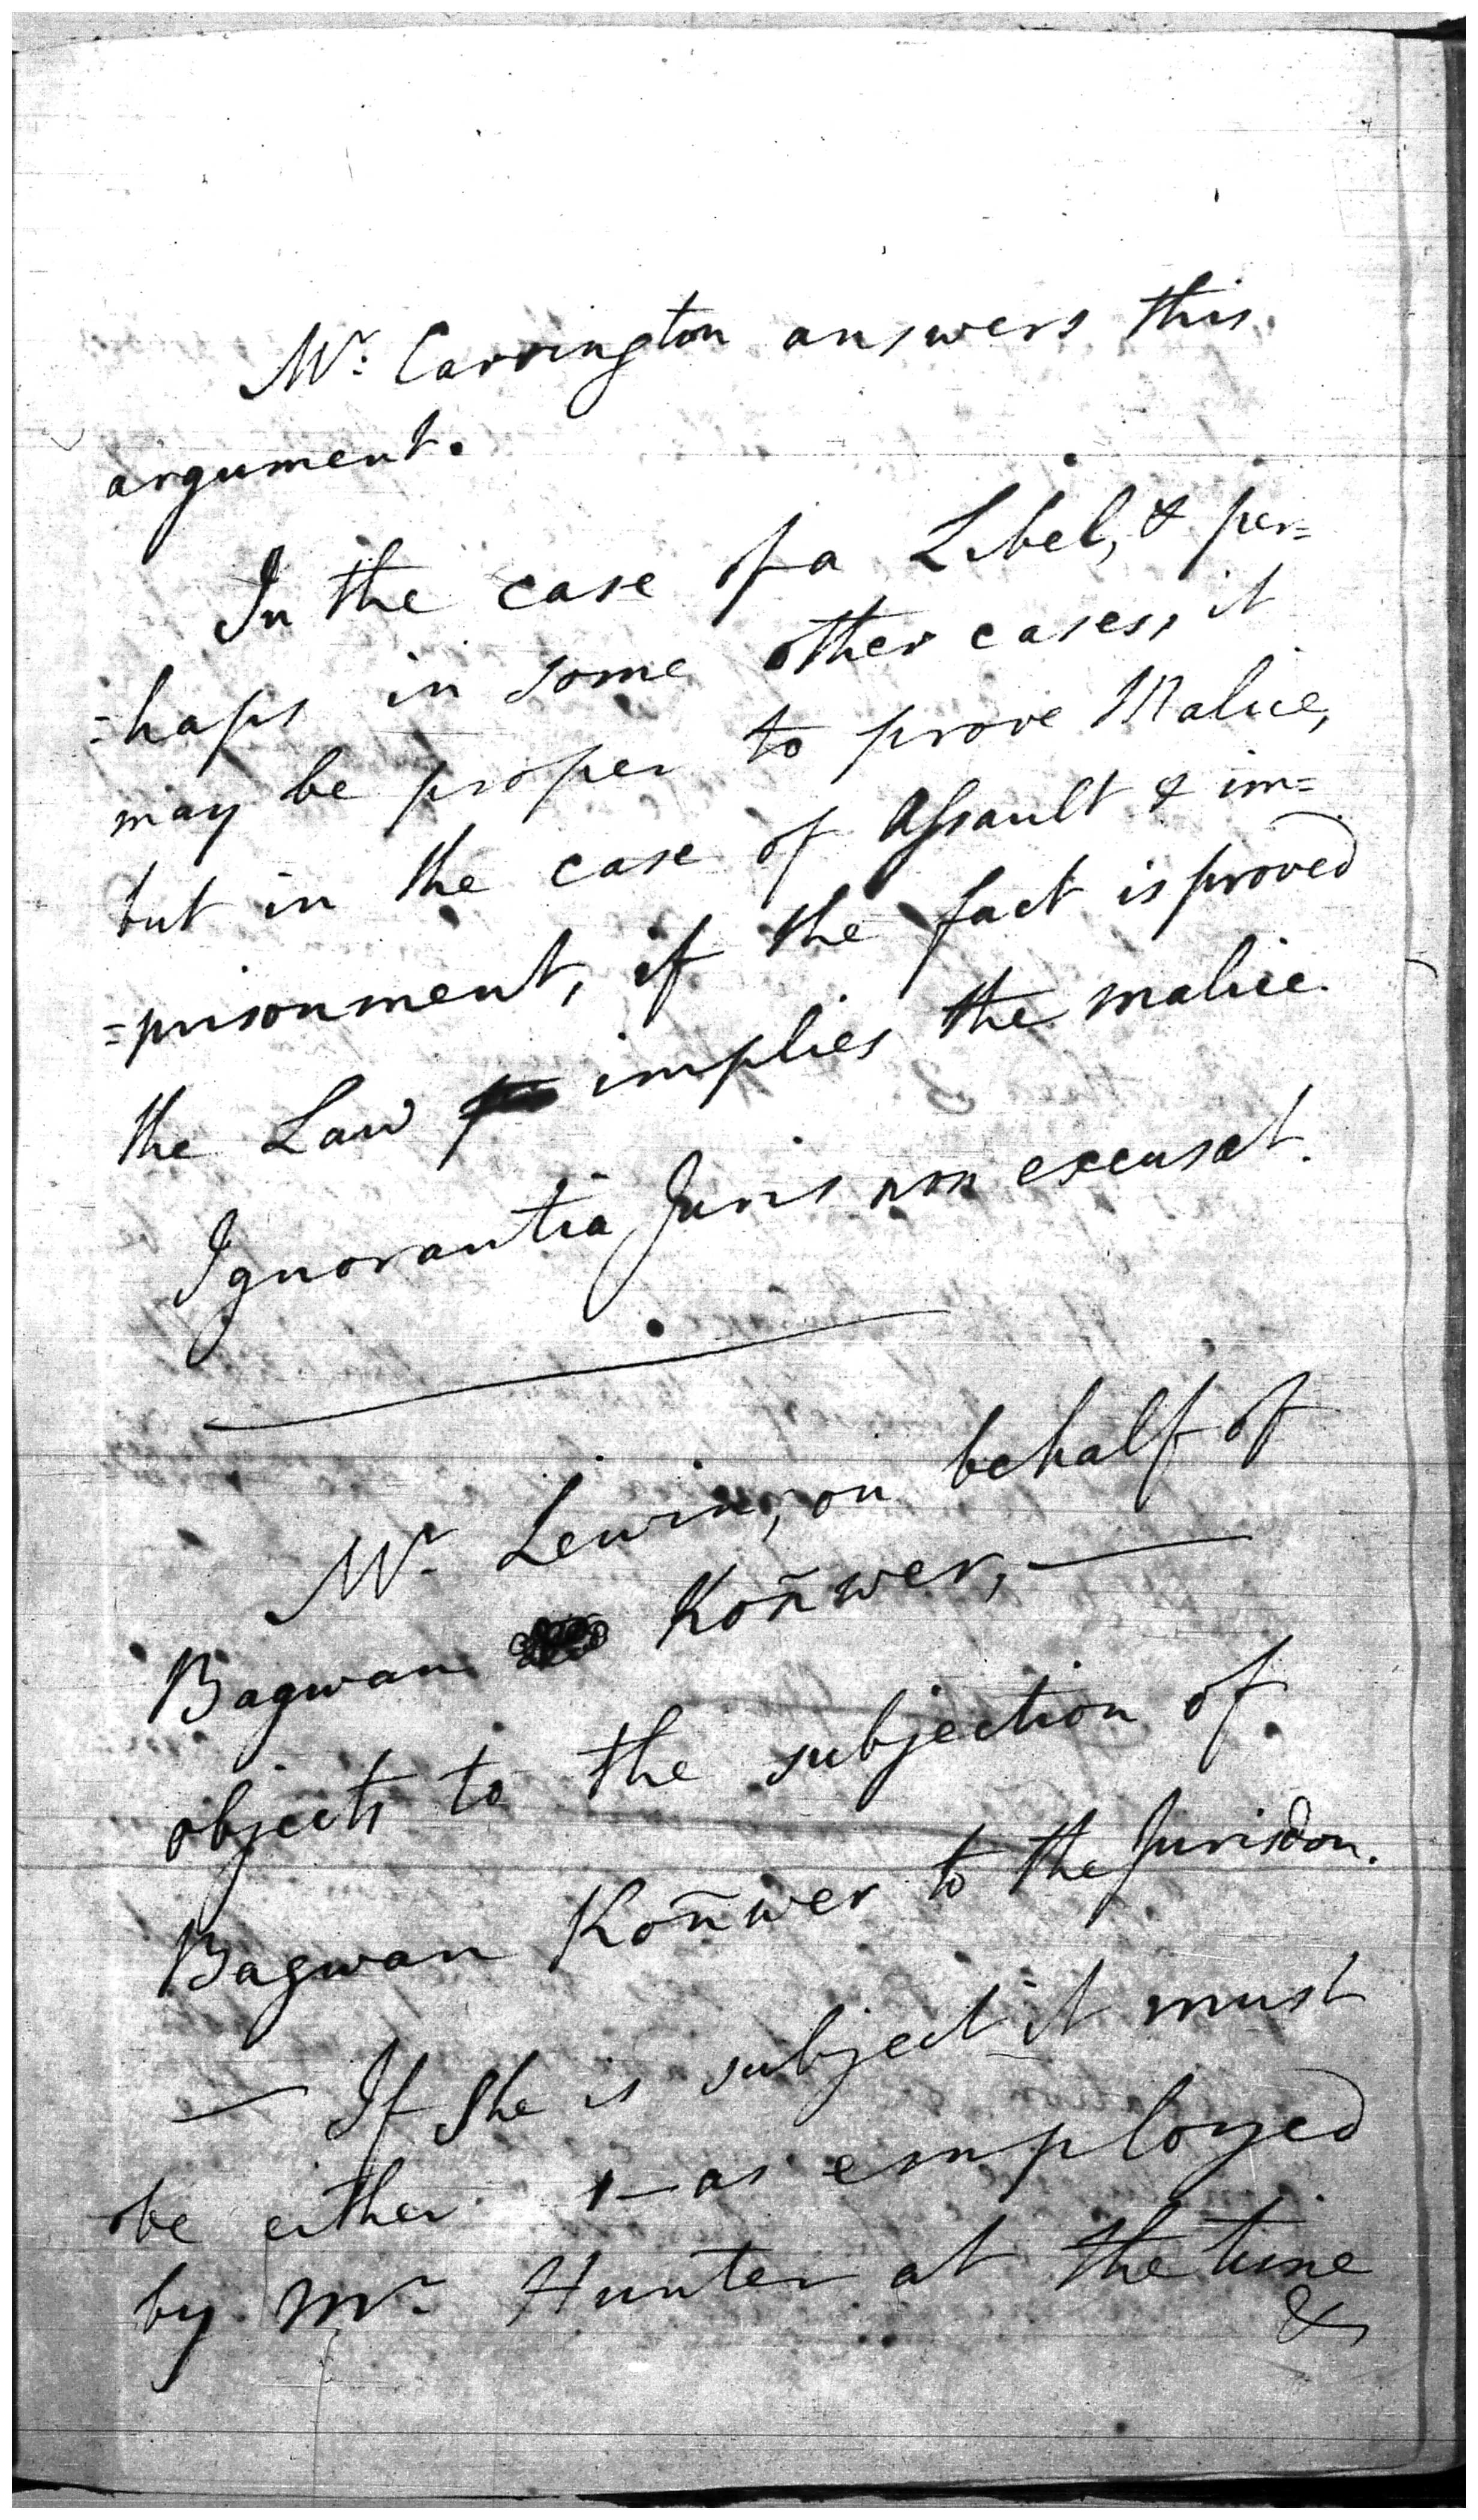 Mr. Carrington answers this
argument.
In the case of a Libel, & per=
=haps in some other cases, it
may be proper to prove Malice,
but in the case of Assault & im=
=prisonment, if the fact is proved
the Law implies the malice.
Ignorantia Juris non excusat.
Mr. Lewin, on behalf of
Bagwan Koñwer, —
objects to the subjection of
Bagwan Koñwer to the Jurisdon.
— If She is subject it must
be either 1— as employed
by Mr. Hunter at the time
&